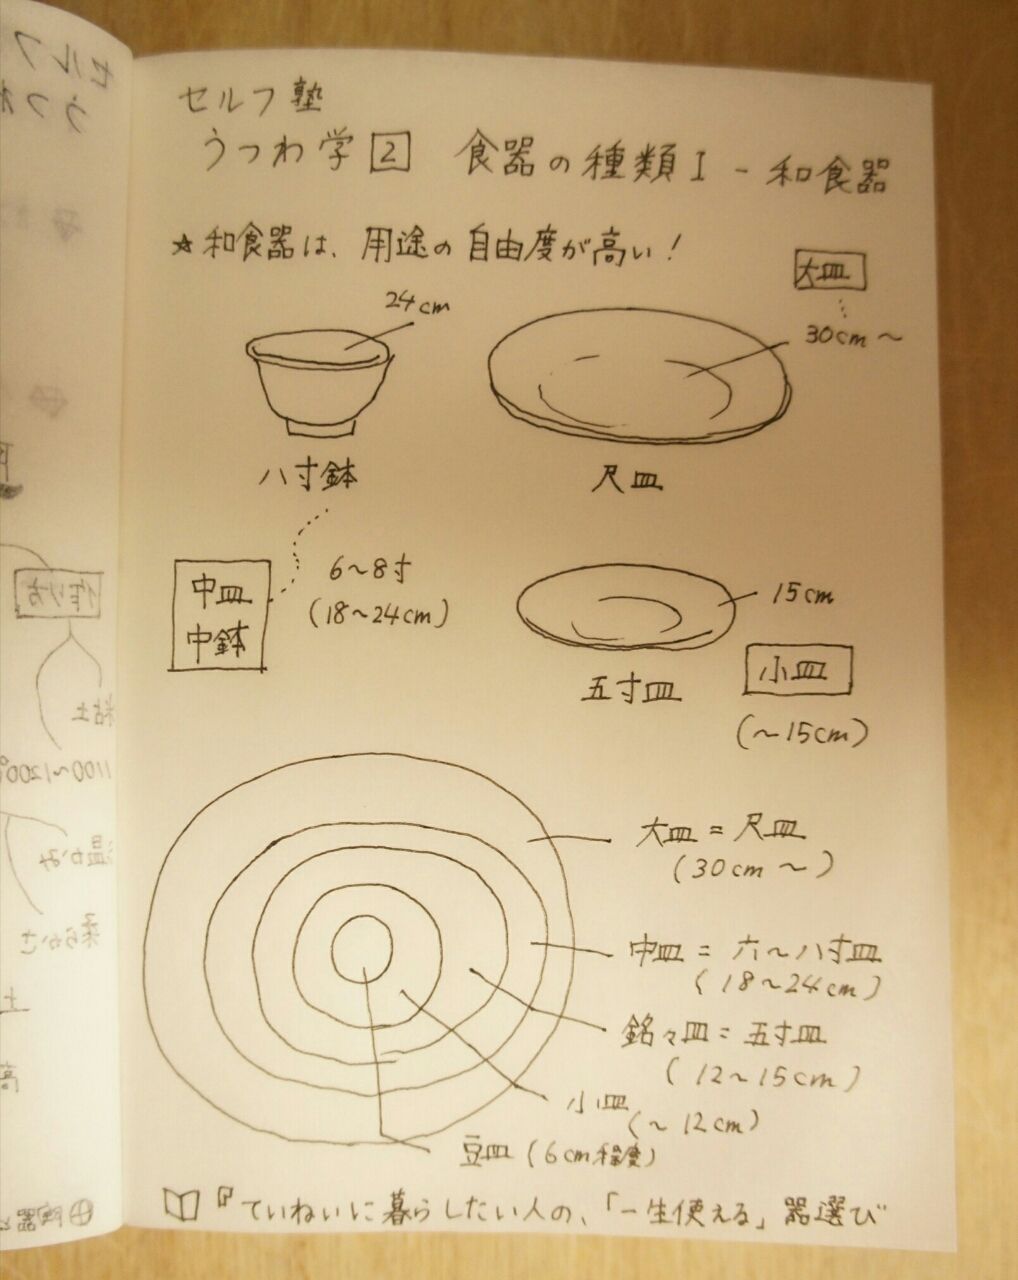 セルフ塾
うつわ学 2 食器の種類I - 和食器
☆和食器は、用途の自由度が高い!
24cm
大皿
30cm～
八寸鉢
尺皿
中皿
中鉢
6～8寸
(18～24cm)
15cm
五寸皿
小皿
(～15cm)
大皿=尺皿
(30cm～)
中皿=六～八寸皿
(18～24cm)
銘々皿=五寸皿
(12～15cm)
小皿
(～12cm)
豆皿(6cm程度)
『ていねいに暮らしたい人の、「一生使える」器選び
セルフ
うつわ
作り方
粘土
1100～1200°
温かみ
柔らかさ
土
高